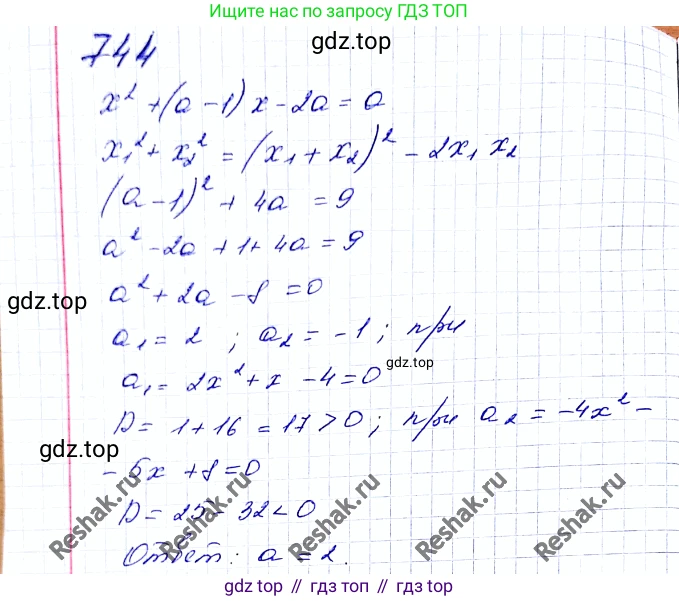 Ищите нас по запросу ГДЗ ТОП
744
gdz.top
x² + (a – 1) x – 2a = 0
x₁² + x₂² = (x₁ + x₂)² – 2x₁ x₂
(a – 1)² + 4a = 9
a² – 2a + 1 + 4a = 9
a² + 2a – 8 = 0
gdz.top
a₁ = 2 ; a₂ = –1 ; при
gdz.top
a₁ = 2x² + x – 4 = 0
D = 1 + 16 = 17 > 0 ; при a₂ = –4x² –
gdz.top
– 5x + 8 = 0
D = 25 – 32 < 0
Ответ: a = 2.
Reshak.ru
Reshak.ru
Reshak.ru
Reshak.ru
Reshak.ru
gdz top // гдз топ // gdz top